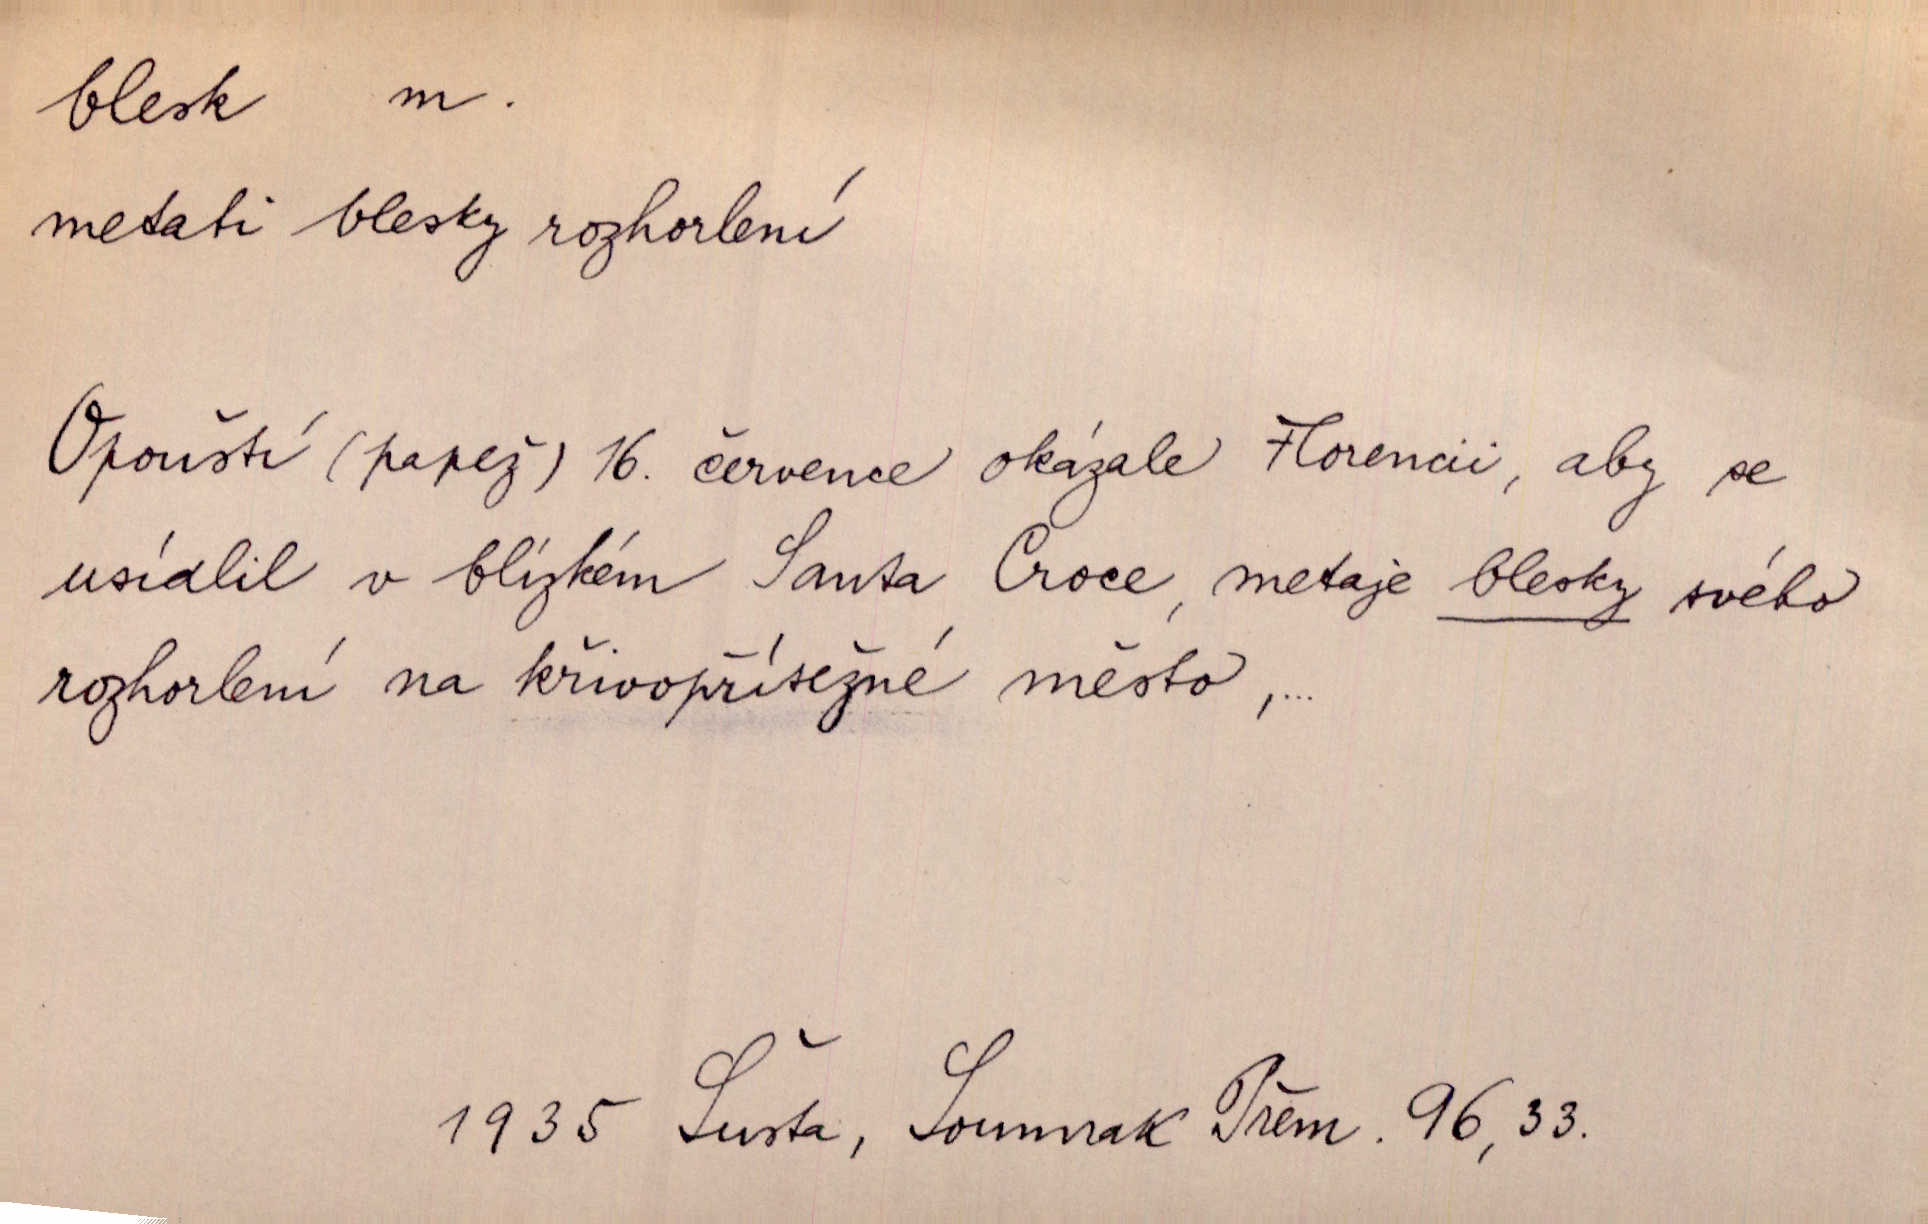 blesk m.
metati blesky rozhorlení
Opouští (papež) 16. července okázale Florencii, aby se
usídlil v blízkém Santa Croce, metaje blesky svého
rozhorlení na křivopřísežné město,...
1935 Šusta, Soumrak Přem. 96, 33.